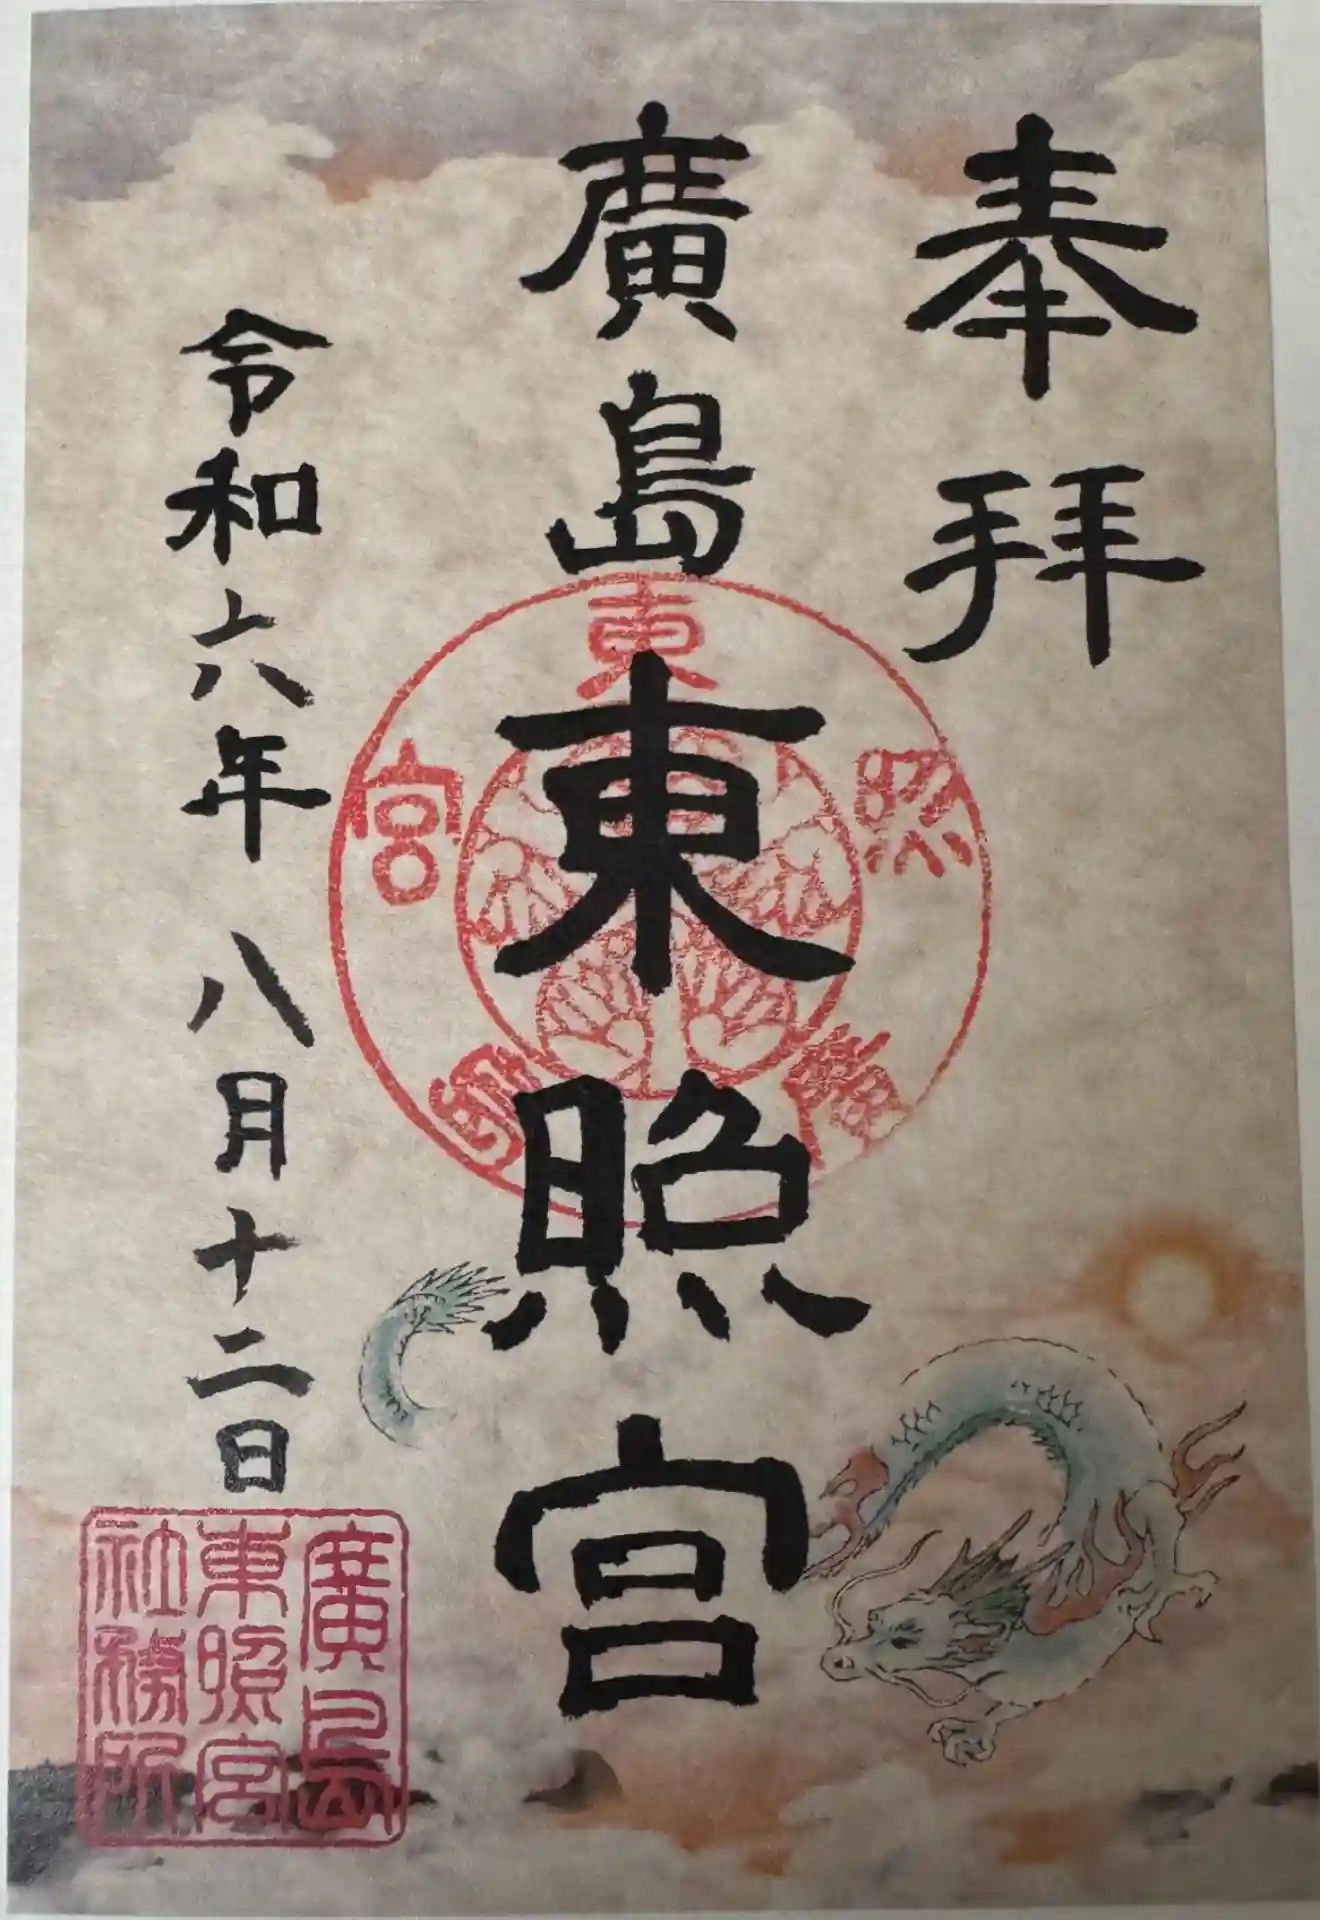 奉拜
廣島東照宮
令和六年 八月十二日
東照廣島宮
廣島
東照宮
社務所